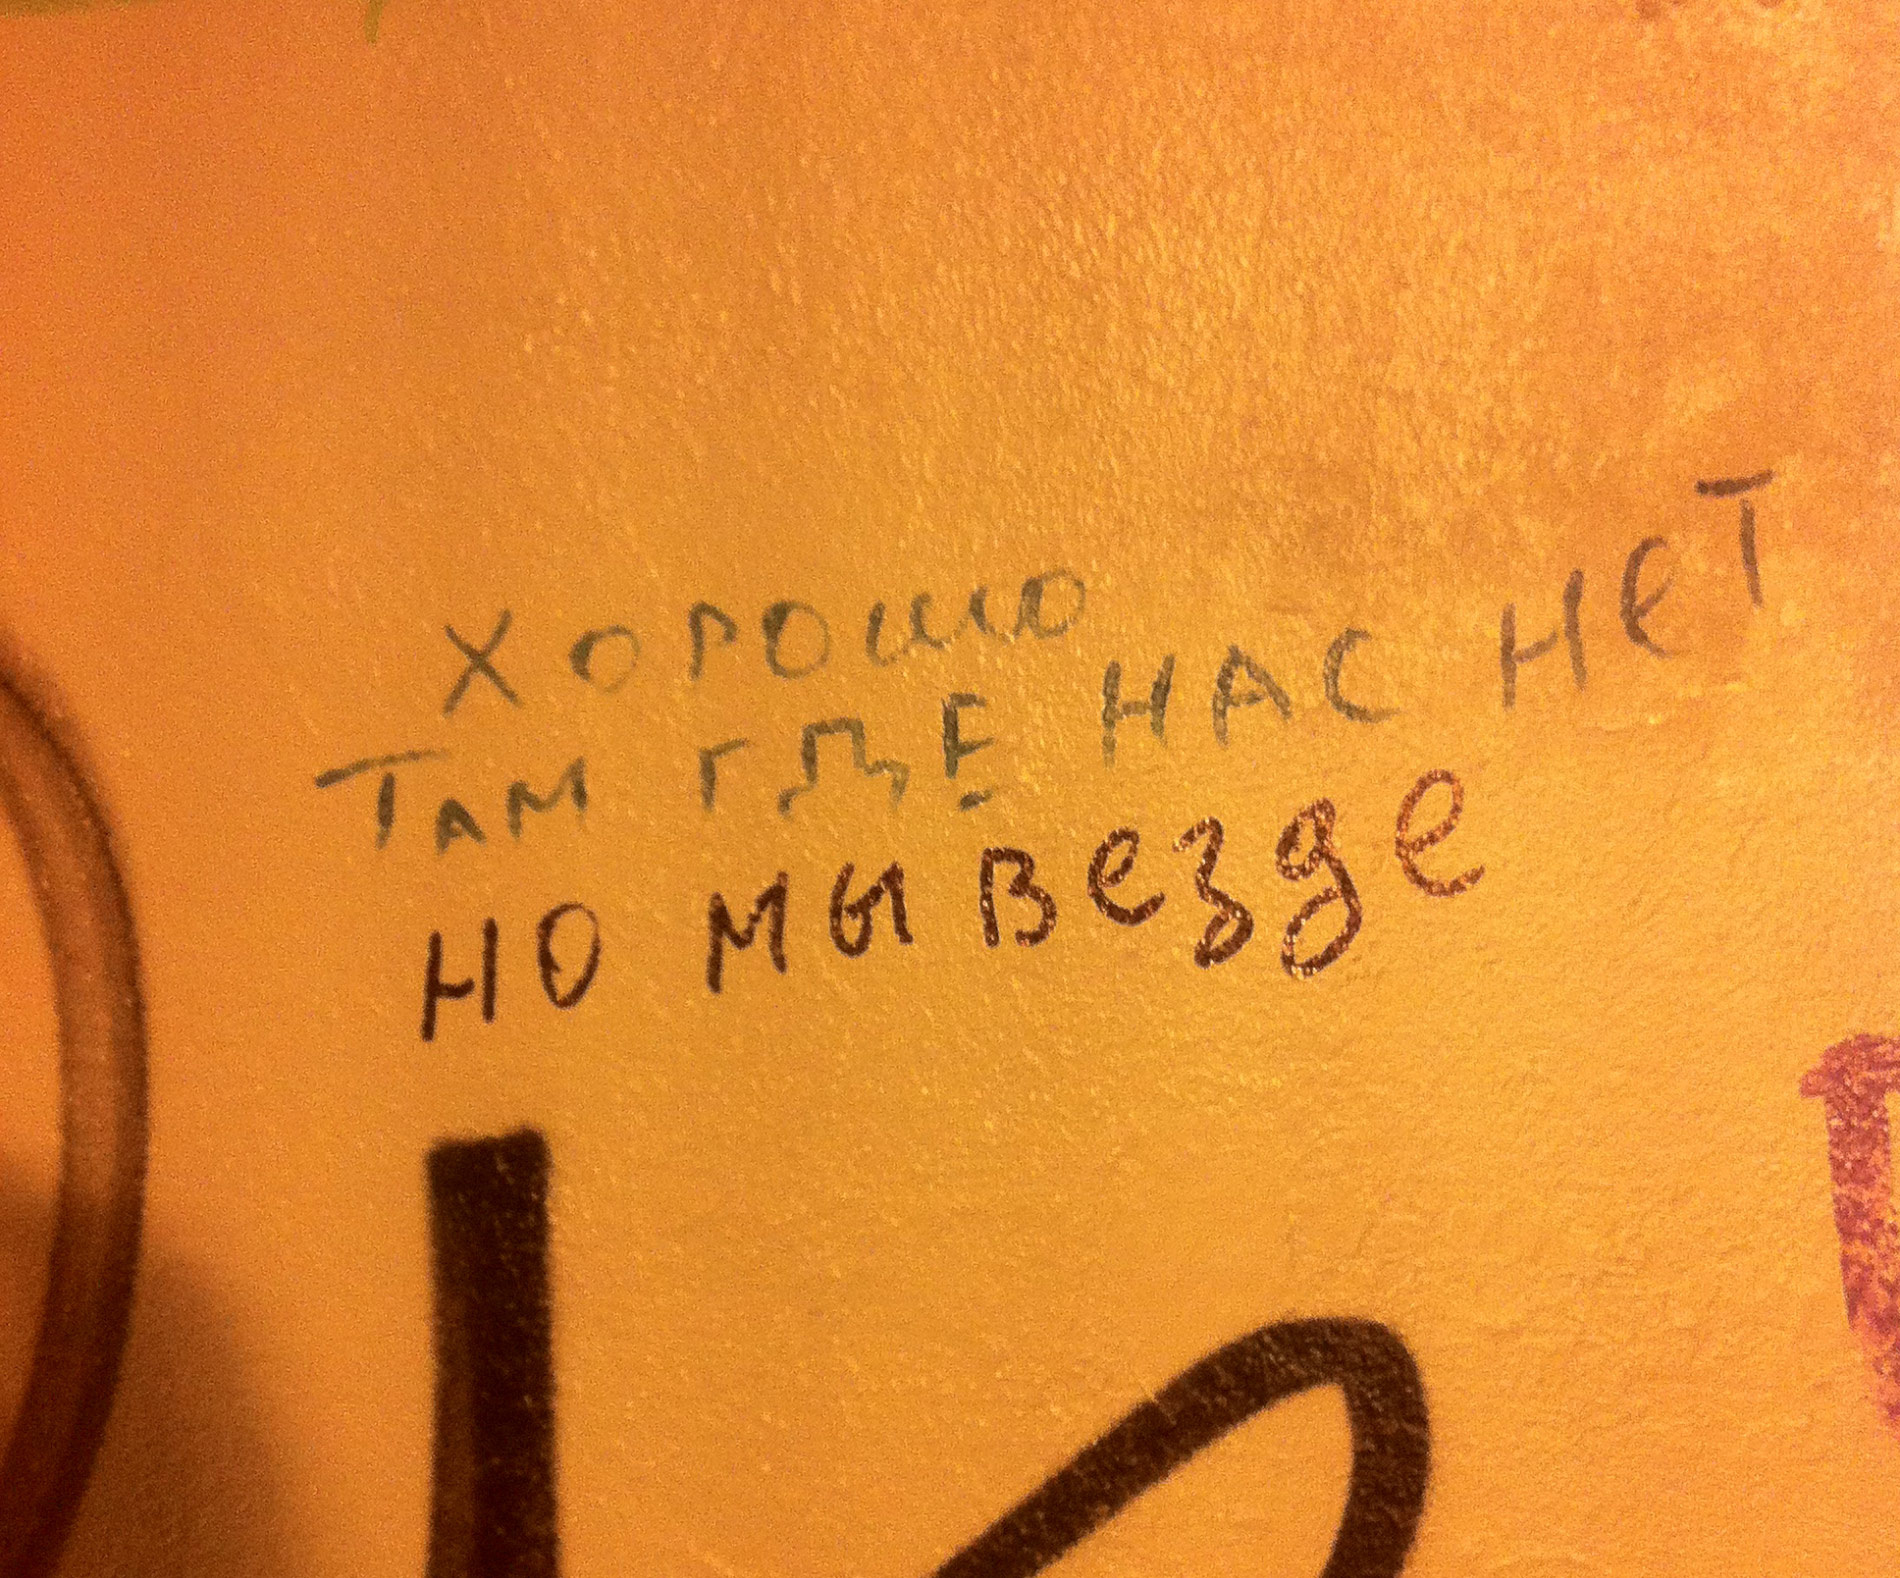 ХОРОШО
ТАМ ГДЕ НАС НЕТ
НО МЫ Везде